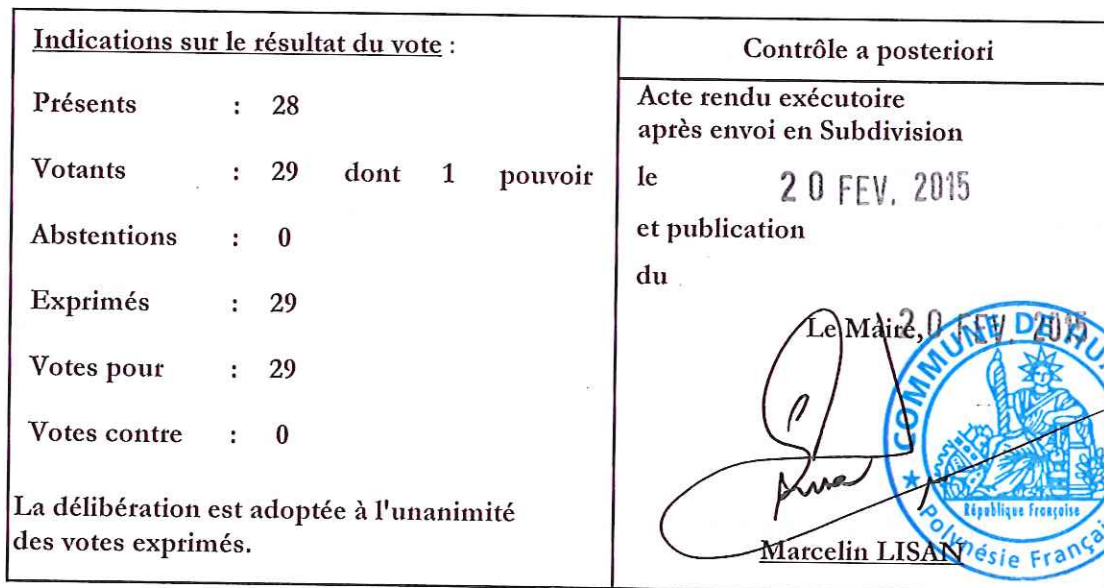 Indications sur le résultat du vote :
Présents : 28
Votants : 29 dont 1 pouvoir
Abstentions : 0
Exprimés : 29
Votes pour : 29
Votes contre : 0
La délibération est adoptée à l'unanimité
des votes exprimés.
Contrôle a posteriori
Acte rendu exécutoire
après envoi en Subdivision
le 20 FEV. 2015
et publication
du
Le Maire, 20 FEV. 2015
COMMUNE DE
République Française
Polynésie
Marcelin LISAN